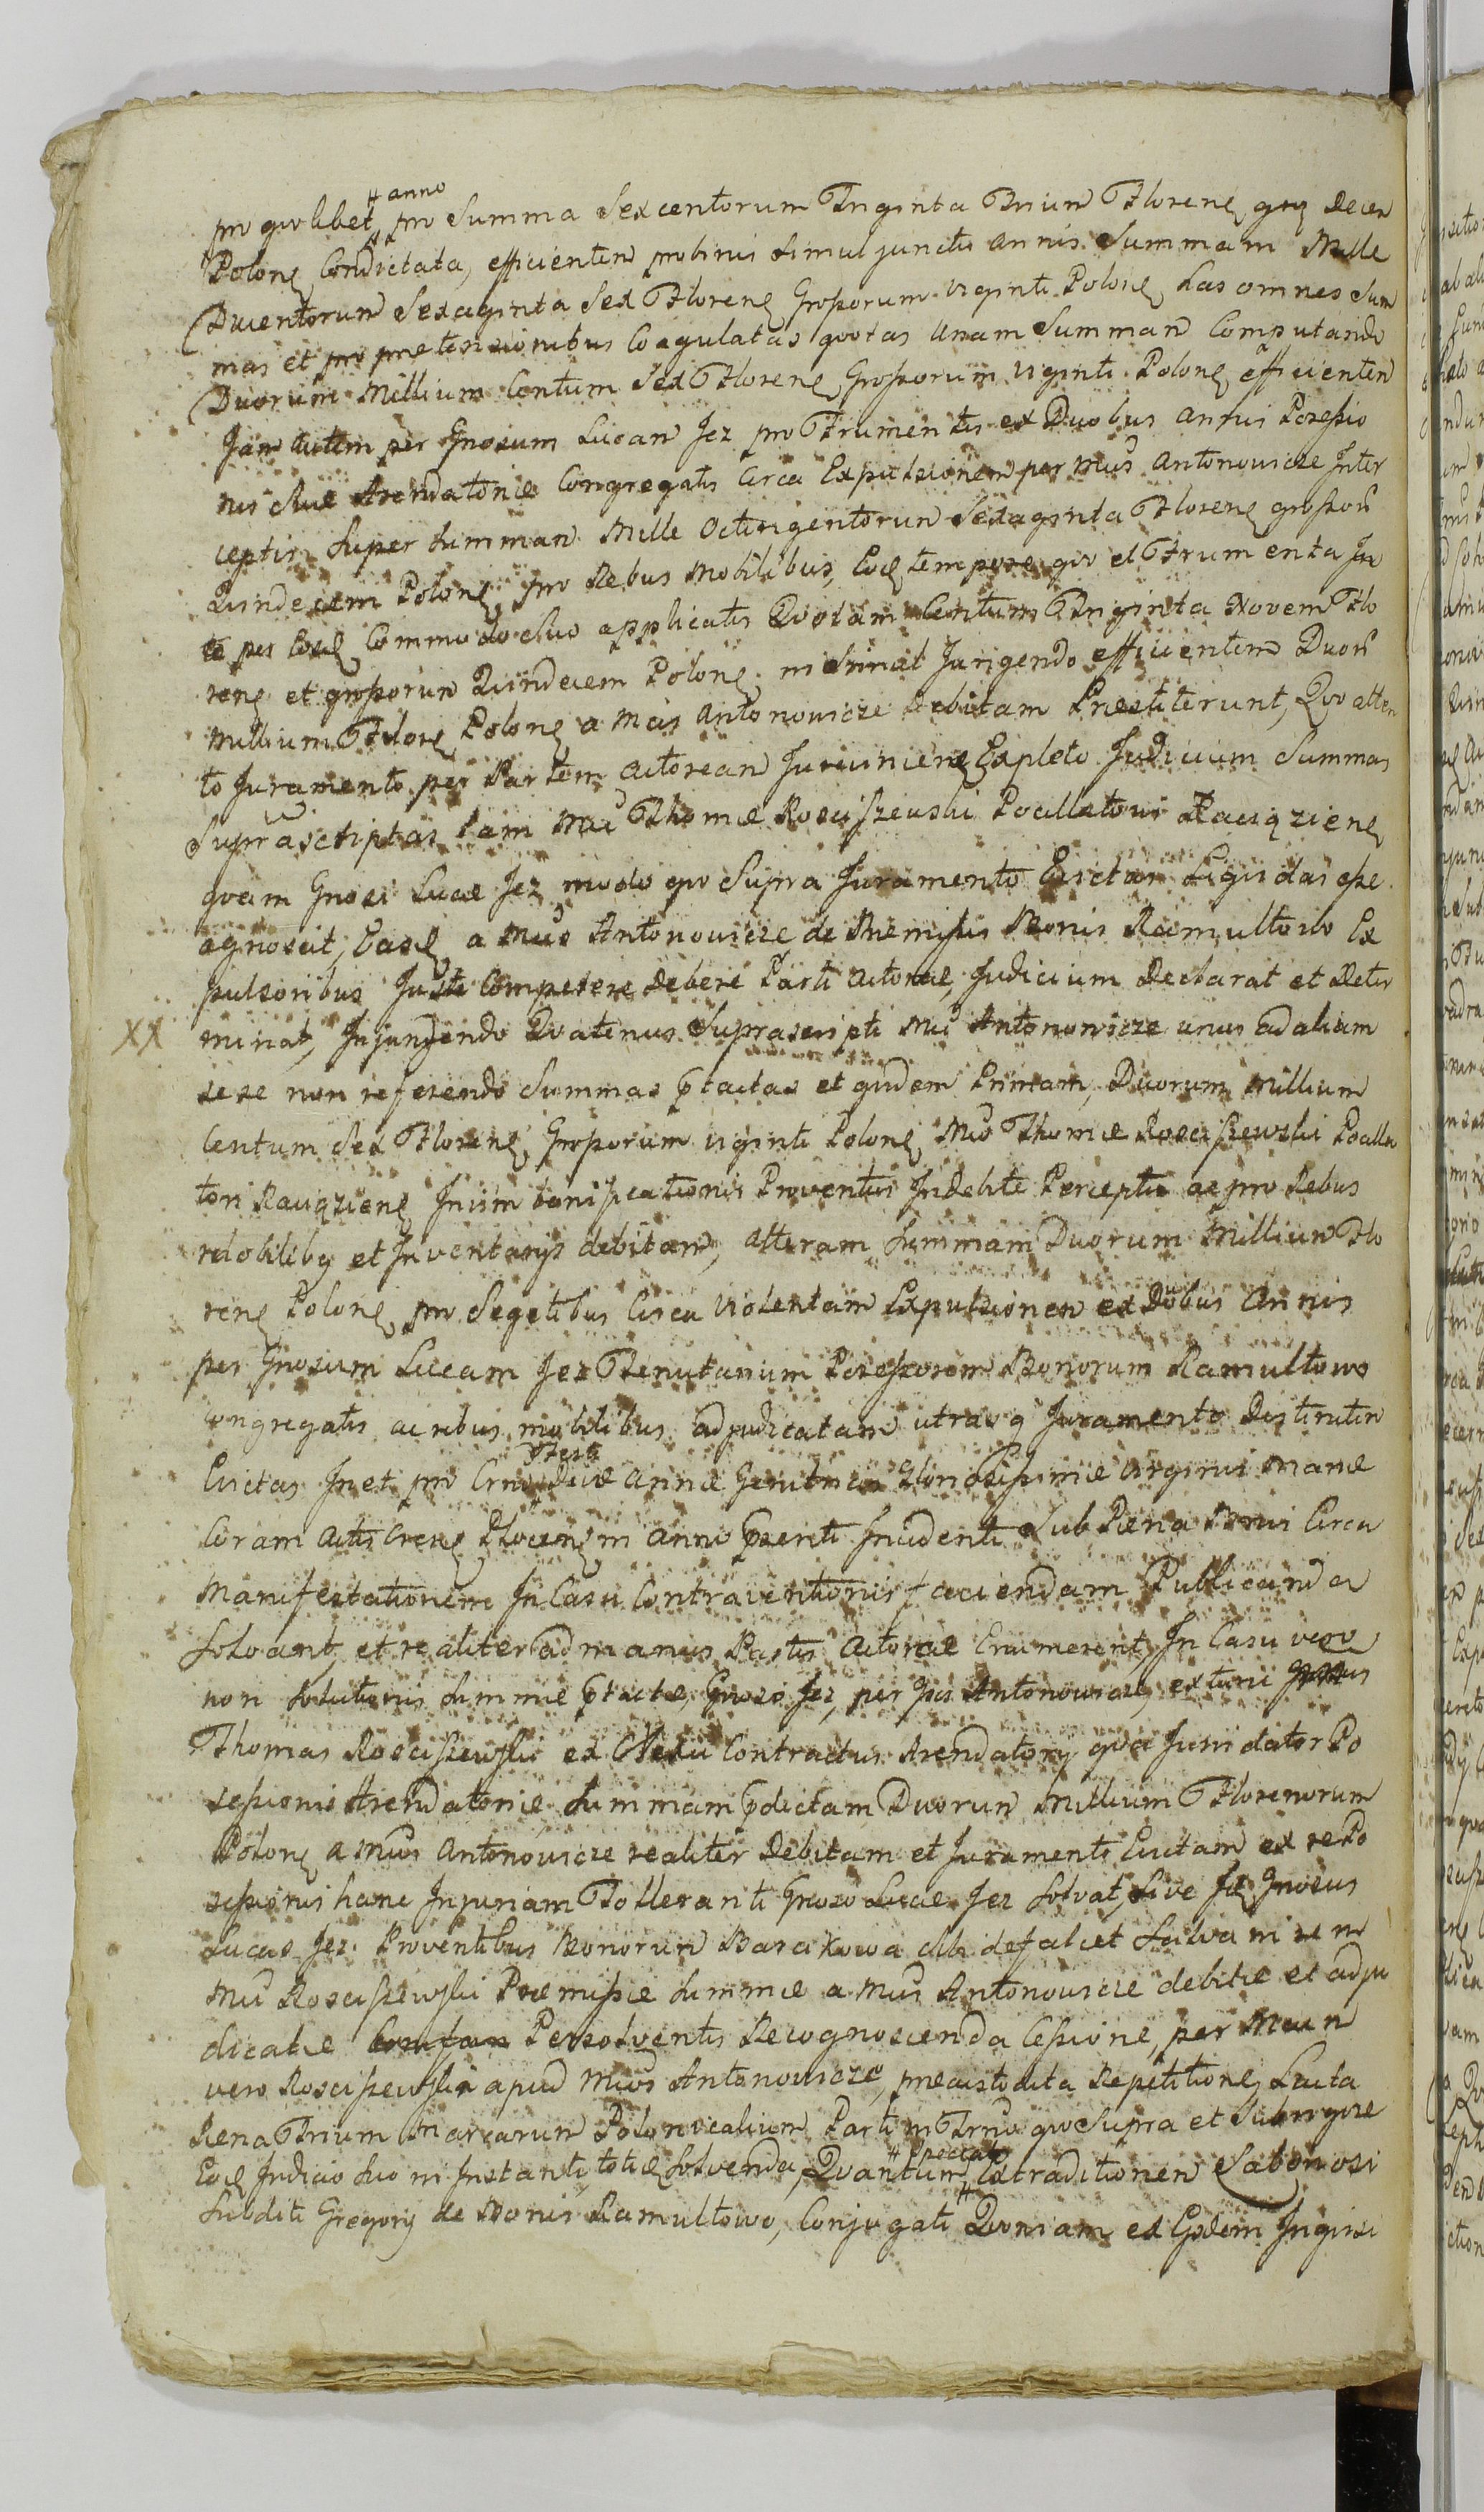 # anno
pro qvolibet # pro Summa Sexcentorum Triginta Trium Floren grs decem
Polon Condictata, efficientem pro binis simul junctis annis Summam Mille
Ducentorum Sexaginta Sex Floren Groszorum viginti Polon, has omnes Sum
mas et pro praetensionibus Coagulatas qvotas unam Summam Computando
Duorum Millium Centum Sex Floren Groszorum viginti Polon efficientem
Jam autem per Gnosum Lucam Jez pro Frumentis ex Duobus annis Possessio
nis suae Arendatoriae Congregatis Circa Expulsionem per Mcos Antonowicze Inter
ceptis Super Summam Mille Octingentorum Sexaginta Floren groszor
Quindecem Polon, pro Rebus Mobilibus, Eoq tempore qvo et Frumenta In
te per Eosd Commodo Suo applicatis Qvotam Centum Triginta Novem Flo
ren et groszorum Quindecem Polon, in Simul Jungendo efficientem Duor
Millium Flore Polon a Mcis Antonowicze debitam Praestiterunt, Qvo atten
to Juramento per Partem Actoream Juridicien Expleto Judicium Summas
Suprascriptas tam Mci Thomae Rosciszewski Pocillatori Raciązien
qvam Gnosi Lucae Jez modo qvo Supra Juramento Evictas Ligi das esse
agnoscit, Easd a Mcis Antonowicze de Praemissis Bonis Ramultowo Ex
pulsoribus Juste Competere debere Parti Actoreae, Judicium declarat et deter
XX minat, Injungendo Qvatenus Suprascripti Mci Antonowicze unus ad alium
se se non referendo Summas ptactas et qvidem Primam, Duorum Millium
Centum Sex Floren, Groszorum viginti Polon, Mco Thomae Rosciszewski Pocilla
tori Raciązien Inim bonificationis Proventus Indebite Perceptis ac pro Rebus
Mobiliby et Inventarijs debitam, alteram Summam Duorum Millium Flo
ren Polon, pro Segetibus Circa Violentam Expulsionem ex Duobus Annis
per Gnosum Lucam Jez Tenutarium Possessorem Bonorum Ramultowo
Congregatis ac rebus mobilibus adjudicatam utraqq Juramento Distinctim
Festi
Evictas In et pro Crno # Divae Annae Genitricis Gloriosissimae Virginis Mariae
Coram Actis Cren Plocen in anno pnti Incidenti Sub Paena Banni Circa
Manifestationem In Casu Contraventionis faciendam Publicanda
Solvant, et realiter ad manus Partis Actoreae Enumerent, In Casu vero
non Solutionis Summae ptactae, Gnoso Jez, per Ipsos Antonowicze, ex tunc
Thomas Rosciszewski ex Nexu Contractus Arendatorij qva Juris dator Po
sessionis Arendatoriae Summam pdictam Duorum Millium Florenorum
Polon a Mcis Antonowicze realiter Debitam et Juramenti Evictam ex re Po
sessionis hanc Injuriam Tolleranti Gnoso Lucae Jez Solvat, sive Idem Gnosus
Lucas Jez Proventibus Bonorum sibi defalcet Salva in rem
Mci Rosciszewski Praemissae Summae a Mcis Antonowicze debitae et adju
dicatae Persolventis Recognoscenda Cessione, per Mcum
vero Rosciszewski apud Mcos Antonowicze, praecustodita Repetitione, Lucta
Paena Trium Marcarum Polonicalium Parti in Trno qvo Supra et Sub rigore
Eoq Judicio Suo in Instanti, toties Solvenda, Qvantum # spectat # Extraditionem Laboriosi
Subditi Gregorij de Bonis Ramultowo, Conjugati Qvoniam ex Eadem Inqvisi